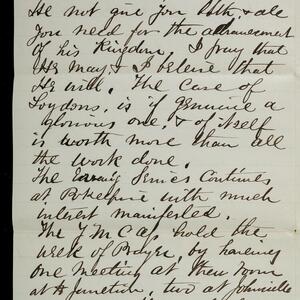 He not give you both, & all
you need for the advancement
of his Kingdom, I pray that
He may, & I believe that
He will. The case of
is if genuine a
glorious one, & of itself
is worth more than all
the work done.
The Evening Service Continues
at with much
interest manifested.
The Y M C A, hold the
Week of Prayer, by having
one Meeting at Their Room
at H Junction, two at Johnsville